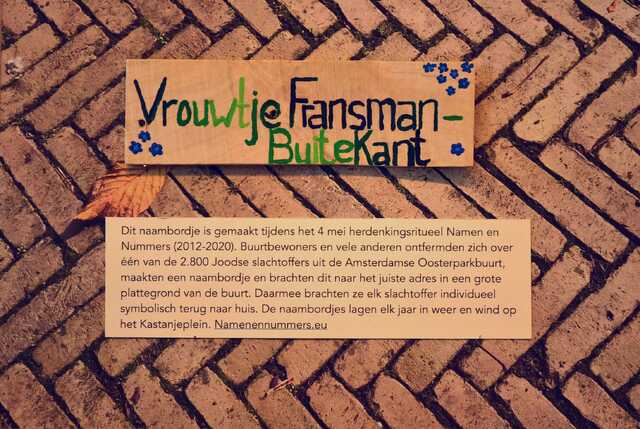 Vrouwtje Fransman-
Buitekant
Dit naambordje is gemaakt tijdens het 4 mei herdenkingsritueel Namen en
Nummers (2012-2020). Buurtbewoners en vele anderen ontfermden zich over
één van de 2.800 Joodse slachtoffers uit de Amsterdamse Oosterparkbuurt,
maakten een naambordje en brachten dit naar het juiste adres in een grote
plattegrond van de buurt. Daarmee brachten ze elk slachtoffer individueel
symbolisch terug naar huis. De naambordjes lagen elk jaar in weer en wind op
het Kastanjeplein. Namenennummers.eu